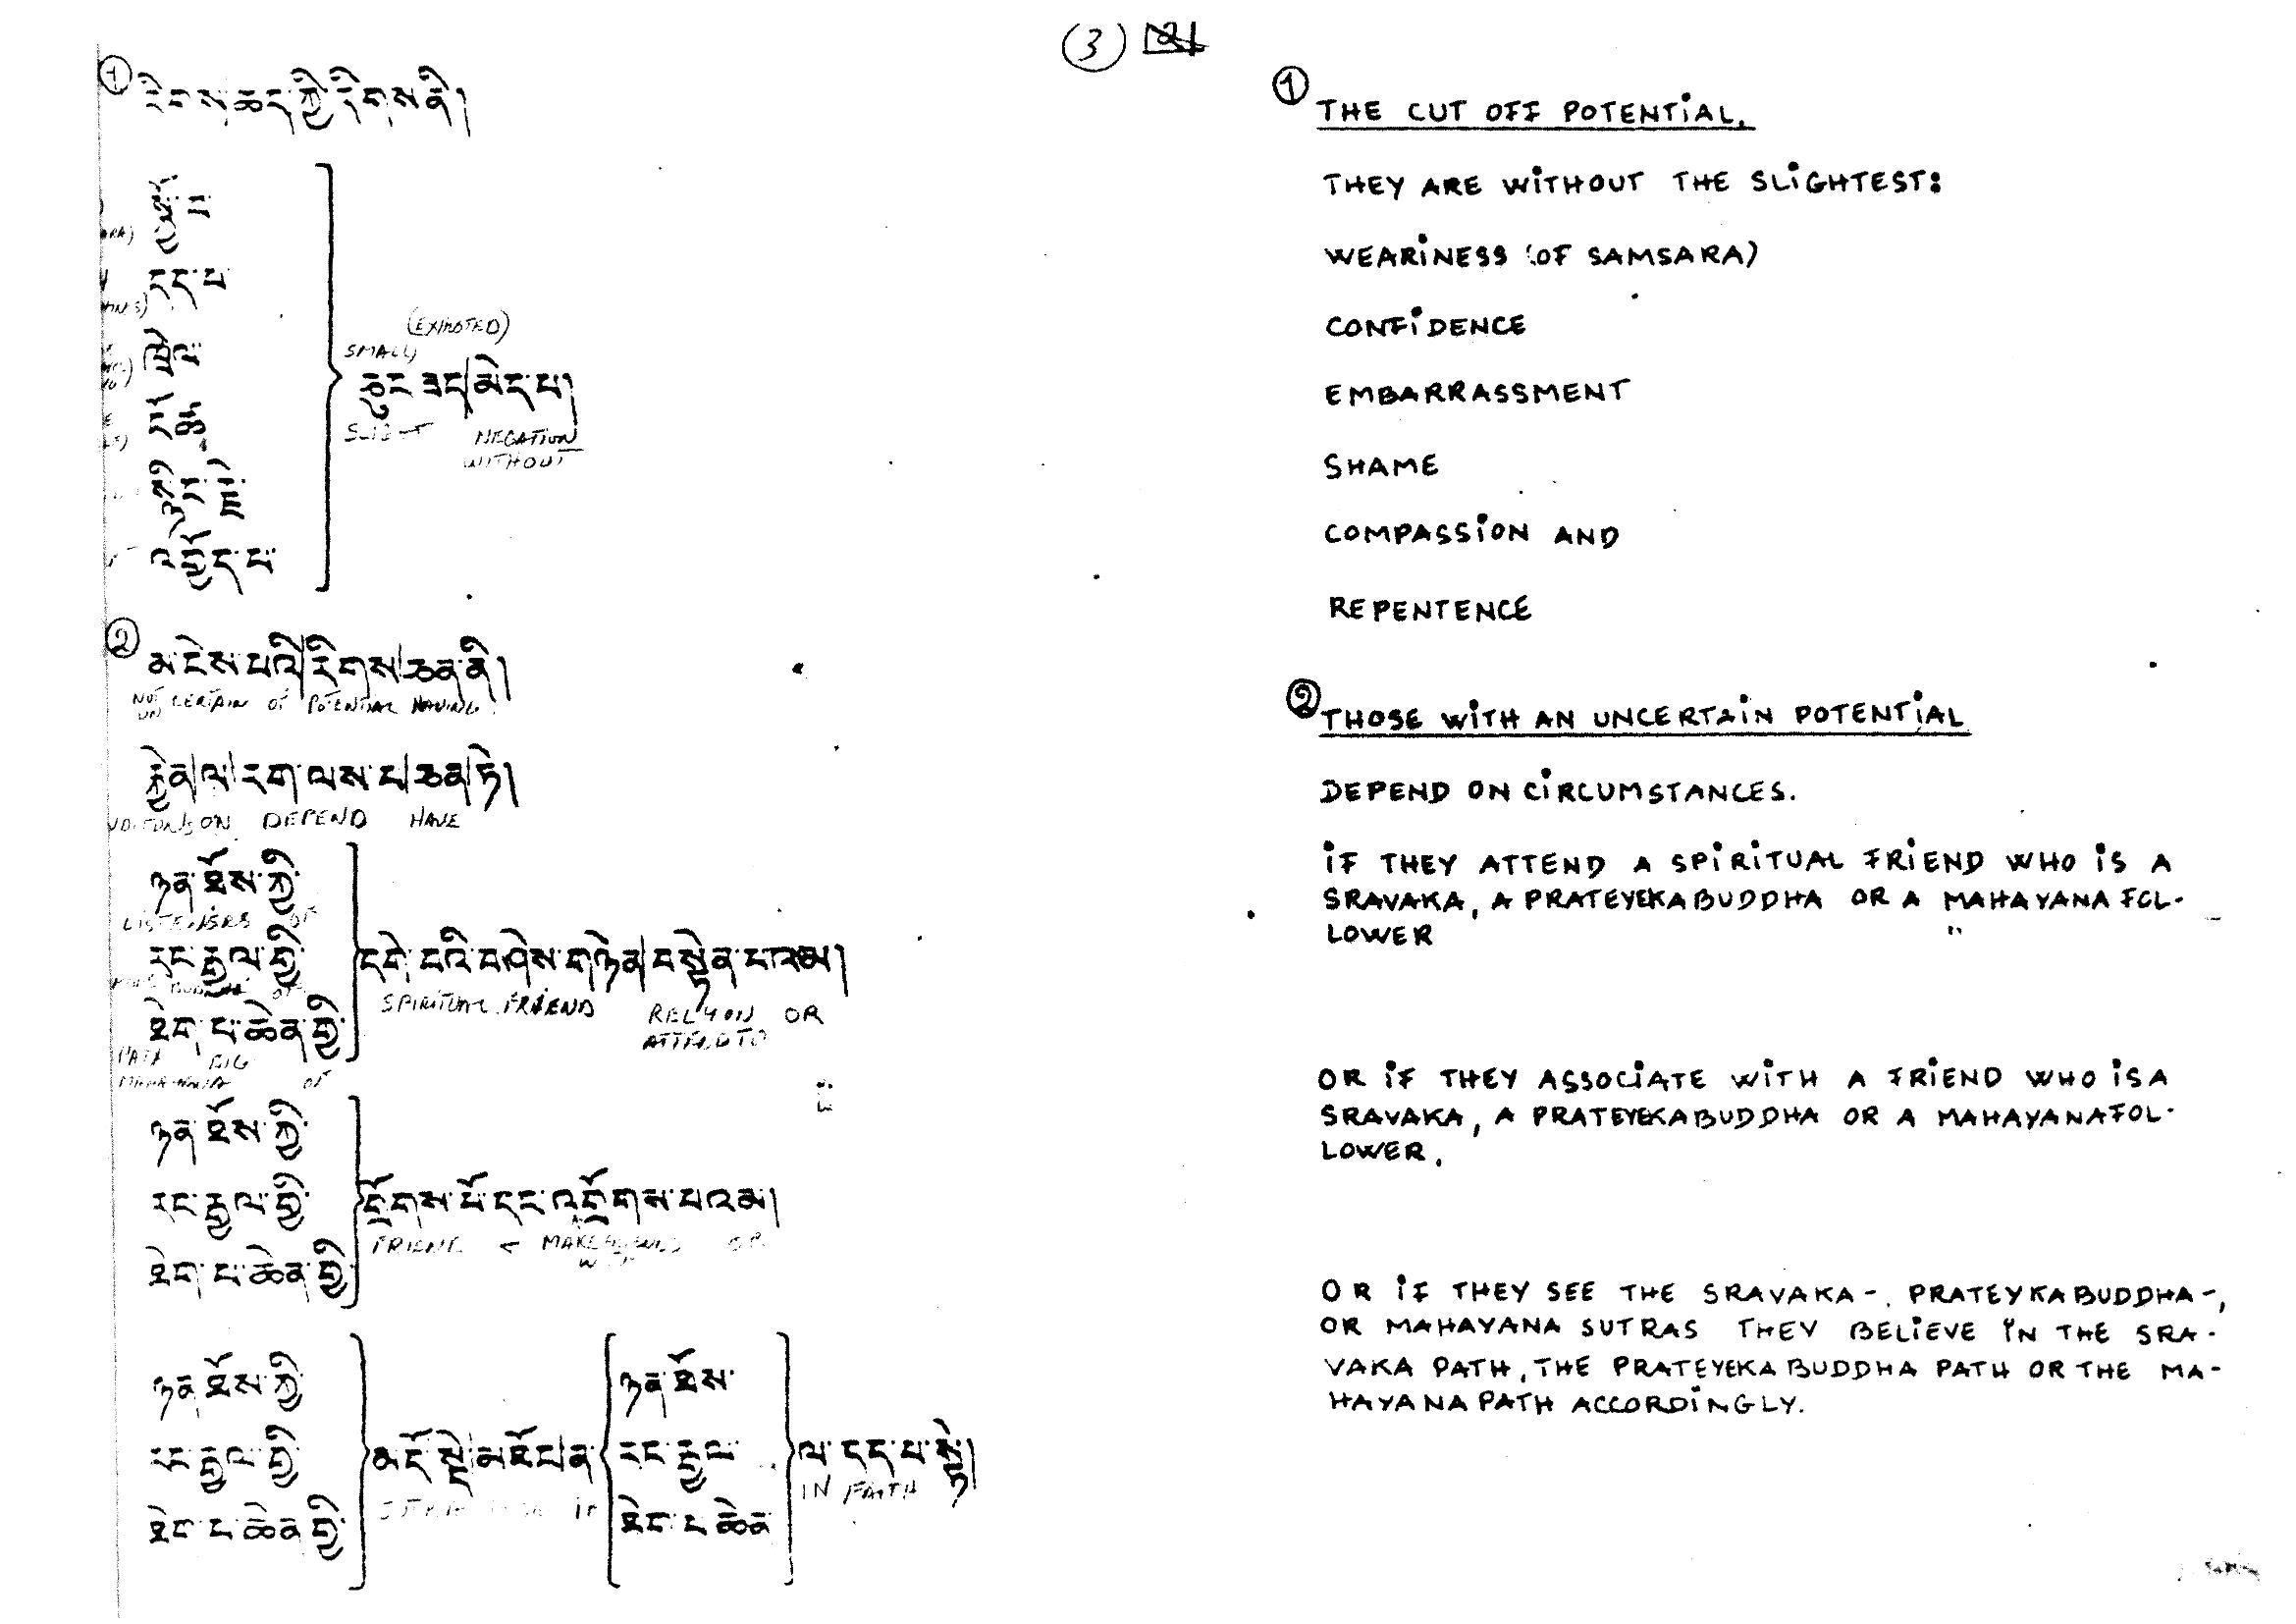 (3)
①
རིགས་ཆད་ཀྱི་རིགས་ནི།
སྐྱོ་བ
དད་པ
ཁྲེལ་
ངོ་ཚ
སྙིང་རྗེ་
འགྱོད་པ་
(EXHOSTED)
SMALL)
ཅུང་ཟད|མེད་པ།
NEGATION
WITHOUT
②
མ་ངེས་པའི|རིགས|ཅན་ནི།
NOT CERTAIN OF POTENTIAL HAVING
UN
རྐྱེན|ལ|རག་ལས་པ|ཅན|ཏེ།
ON DEPEND HAVE
ཉན་ཐོས་ཀྱི་
LISTENERS OF
རང་རྒྱལ་གྱི་
ཐེག་པ་ཆེན་གྱི་
BIG
OF
དགེ་བའི་བཤེས་གཉེན|བསྟེན་པའམ།
SPIRITUAL FRIEND RELY ON OR
ATTEND TO
ཉན་ཐོས་ཀྱི་
རང་རྒྱལ་གྱི་
ཐེག་པ་ཆེན་གྱི་
གྲོགས་པོ་དང་འགྲོགས་པའམ།
FRIEND
ཉན་ཐོས་ཀྱི་
རང་རྒྱལ་གྱི་
ཐེག་པ་ཆེན་གྱི་
མདོ་སྡེ|མཐོང|ན་
ཉན་ཐོས་
རང་རྒྱལ་
ཐེག་པ་ཆེན
ལ་དད་པ་སྟེ།
IN FAITH
①
THE CUT OFF POTENTIAL.
THEY ARE WITHOUT THE SLIGHTEST:
WEARINESS (OF SAMSARA)
CONFIDENCE
EMBARRASSMENT
SHAME
COMPASSION AND
REPENTENCE
②
THOSE WITH AN UNCERTAIN POTENTIAL
DEPEND ON CIRCUMSTANCES.
IF THEY ATTEND A SPIRITUAL FRIEND WHO IS A
SRAVAKA, A PRATEYEKABUDDHA OR A MAHAYANA FOL-
LOWER
OR IF THEY ASSOCIATE WITH A FRIEND WHO IS A
SRAVAKA, A PRATEYEKABUDDHA OR A MAHAYANAFOL-
LOWER.
OR IF THEY SEE THE SRAVAKA-, PRATEYKABUDDHA-,
OR MAHAYANA SUTRAS THEY BELIEVE IN THE SRA-
VAKA PATH, THE PRATEYEKABUDDHA PATH OR THE MA-
HAYANA PATH ACCORDINGLY.